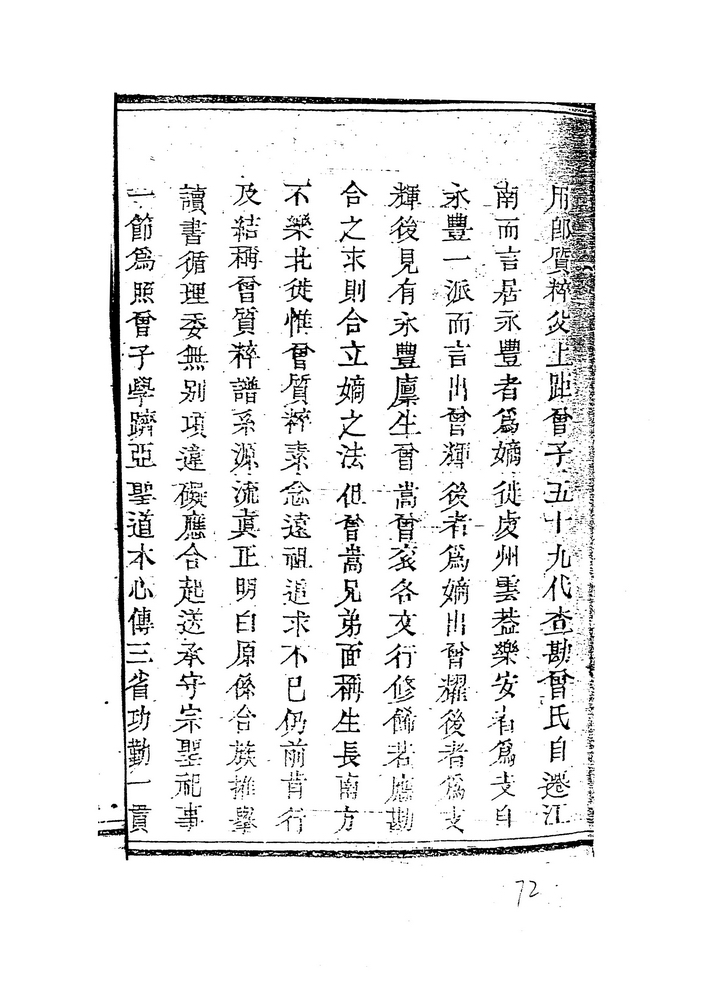 用即質粹父上距曾子五十九代查勘曾氏自遷江
南而言居永豐者爲嫡徙虔州雲蓋樂安者爲支自
永豐一派而言出曾輝後者爲嫡出曾耀後者爲支
輝後見有永豐廩生曾嵩曾衮各文行修餙若應勘
合之求則合立嫡之法但曾嵩兄弟面稱生長南方
不樂北徙惟曾質粹素念遠祖追求不已仍前肯行
及結稱曾質粹譜系源流真正明白原係合族推舉
讀書循理委無别項違礙應合起送承守宗聖祀事
一節爲照曾子學躋亞聖道本心傳三省功勤一貫
72